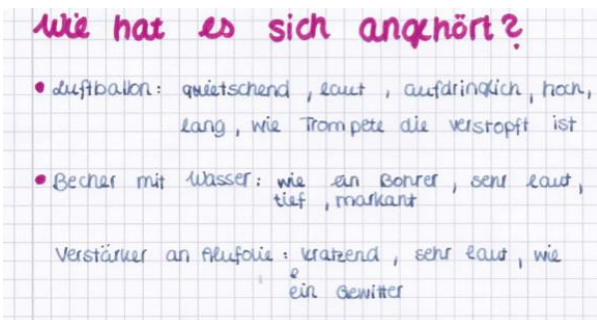 Wie hat es sich angehört?
• Luftballon: quietschend, laut, aufdringlich, hoch,
lang, wie Trompete die verstopft ist
• Becher mit Wasser: wie ein Bohrer, sehr laut,
tief, markant
Verstärker an Alufolie: kratzend, sehr laut, wie
ein Gewitter